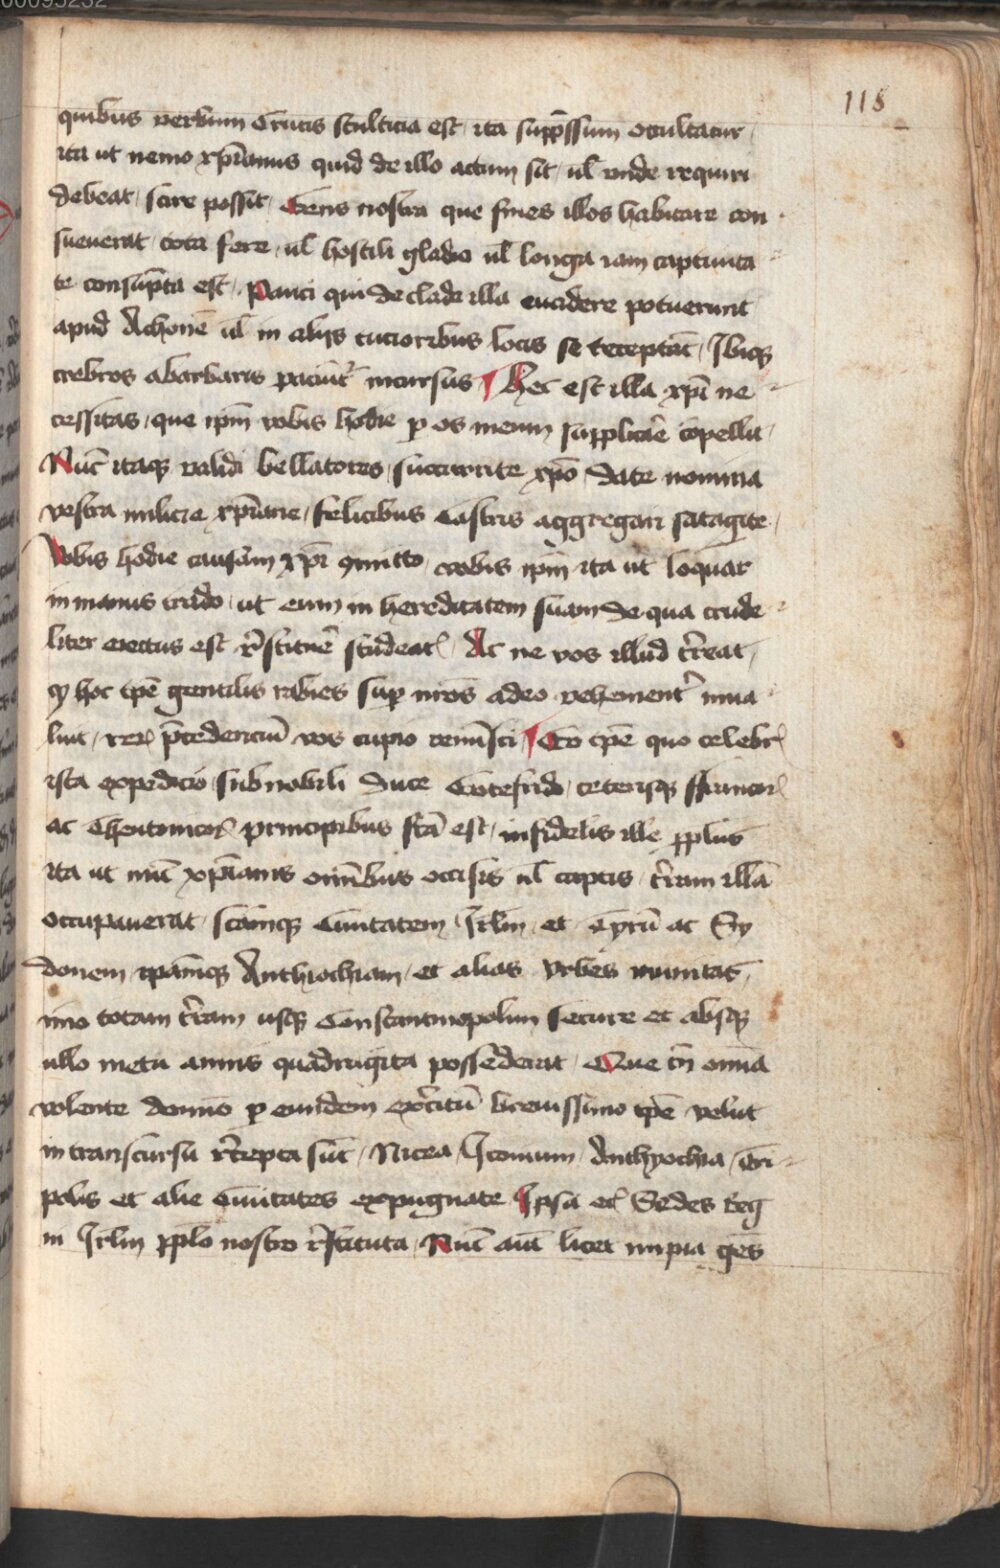 00095232
118
quibus verbum Crucis stulticia est, ita supp̄ssum occultatur,
ita ut nemo xp̄ianus quid de illo actum sit, ul̄ unde requiri
debeat, scire possit, Gens nostra que fines illos habitare con
sueuerat, tota fere, ul̄ hostili gladio ul̄ longa iam captiuita
te consūpta est, Pauci qui de clade illa euadere potuerunt
apud Achonē ul̄ in alijs tucioribus locis se receptāt, Ibiqꝫ
crebros a barbaris paciūt᷑ incursus, Hec est illa xp̄i ne
cessitas, que ip̄m vobis hodie ꝑ os meum supplicare cōpellit,
Nūc itaqꝫ validi bellatores, succurrite xp̄o, date nomina
vestra milicie xp̄iane, felicibus Castris aggregari satagite,
Vobis hodie causam xp̄i ꝯmitto, vobis ip̄m ita ut loquar
in manus trado, ut eum in hereditatem suam de qua crude
liter eiectus est r̄stituē studeat᷑, Ac ne vos illud t̄reat,
ꝙ hoc tp̄e gentilis rabies suꝑ nr̄os adeo vehement᷑ inua
luit, reꝝ p̄cedenciū vos cupio reminīsci, Eo tp̄e quo celebris
ista expedicio, sub nobili duce Gotefrido, ceterisqꝫ ffrancoꝝ
ac Theutonicoꝝ principibus fc̄a est, infidelis ille pp̄lus
ita ut nūc xp̄ianis omībus occisis ul̄ captis, t̄ram illā
occupauerat, scāmqꝫ Ciuitatem Irlm̄ et Tyrū ac Sy
donem, ip̄amqꝫ Anthiochiam, et alias vrbes munitas,
imo totam t̄ram usqꝫ Constantinopolim secure et absqꝫ
ullo metu annis quadragīta possederat, Que tn̄ omīa
volente domīo ꝑ eundem ex̄citū breuissimo tp̄e velut
in transcursu r̄cepta sūt, Nicea, Iconium, Anthyochia, Tri
polis et alie Ciuitates expugnate Ipsa ec̄ Sedes regni
in Irlm̄ pp̄lo nostro r̄stituta, Nūc aūt licet impia gēs